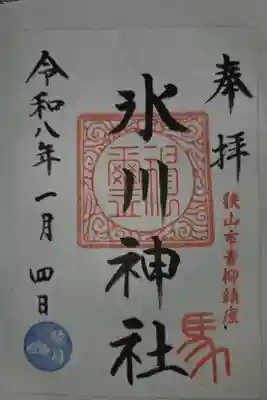 奉拝
狭山市青柳鎮座
氷川神社
馬
令和八年一月四日